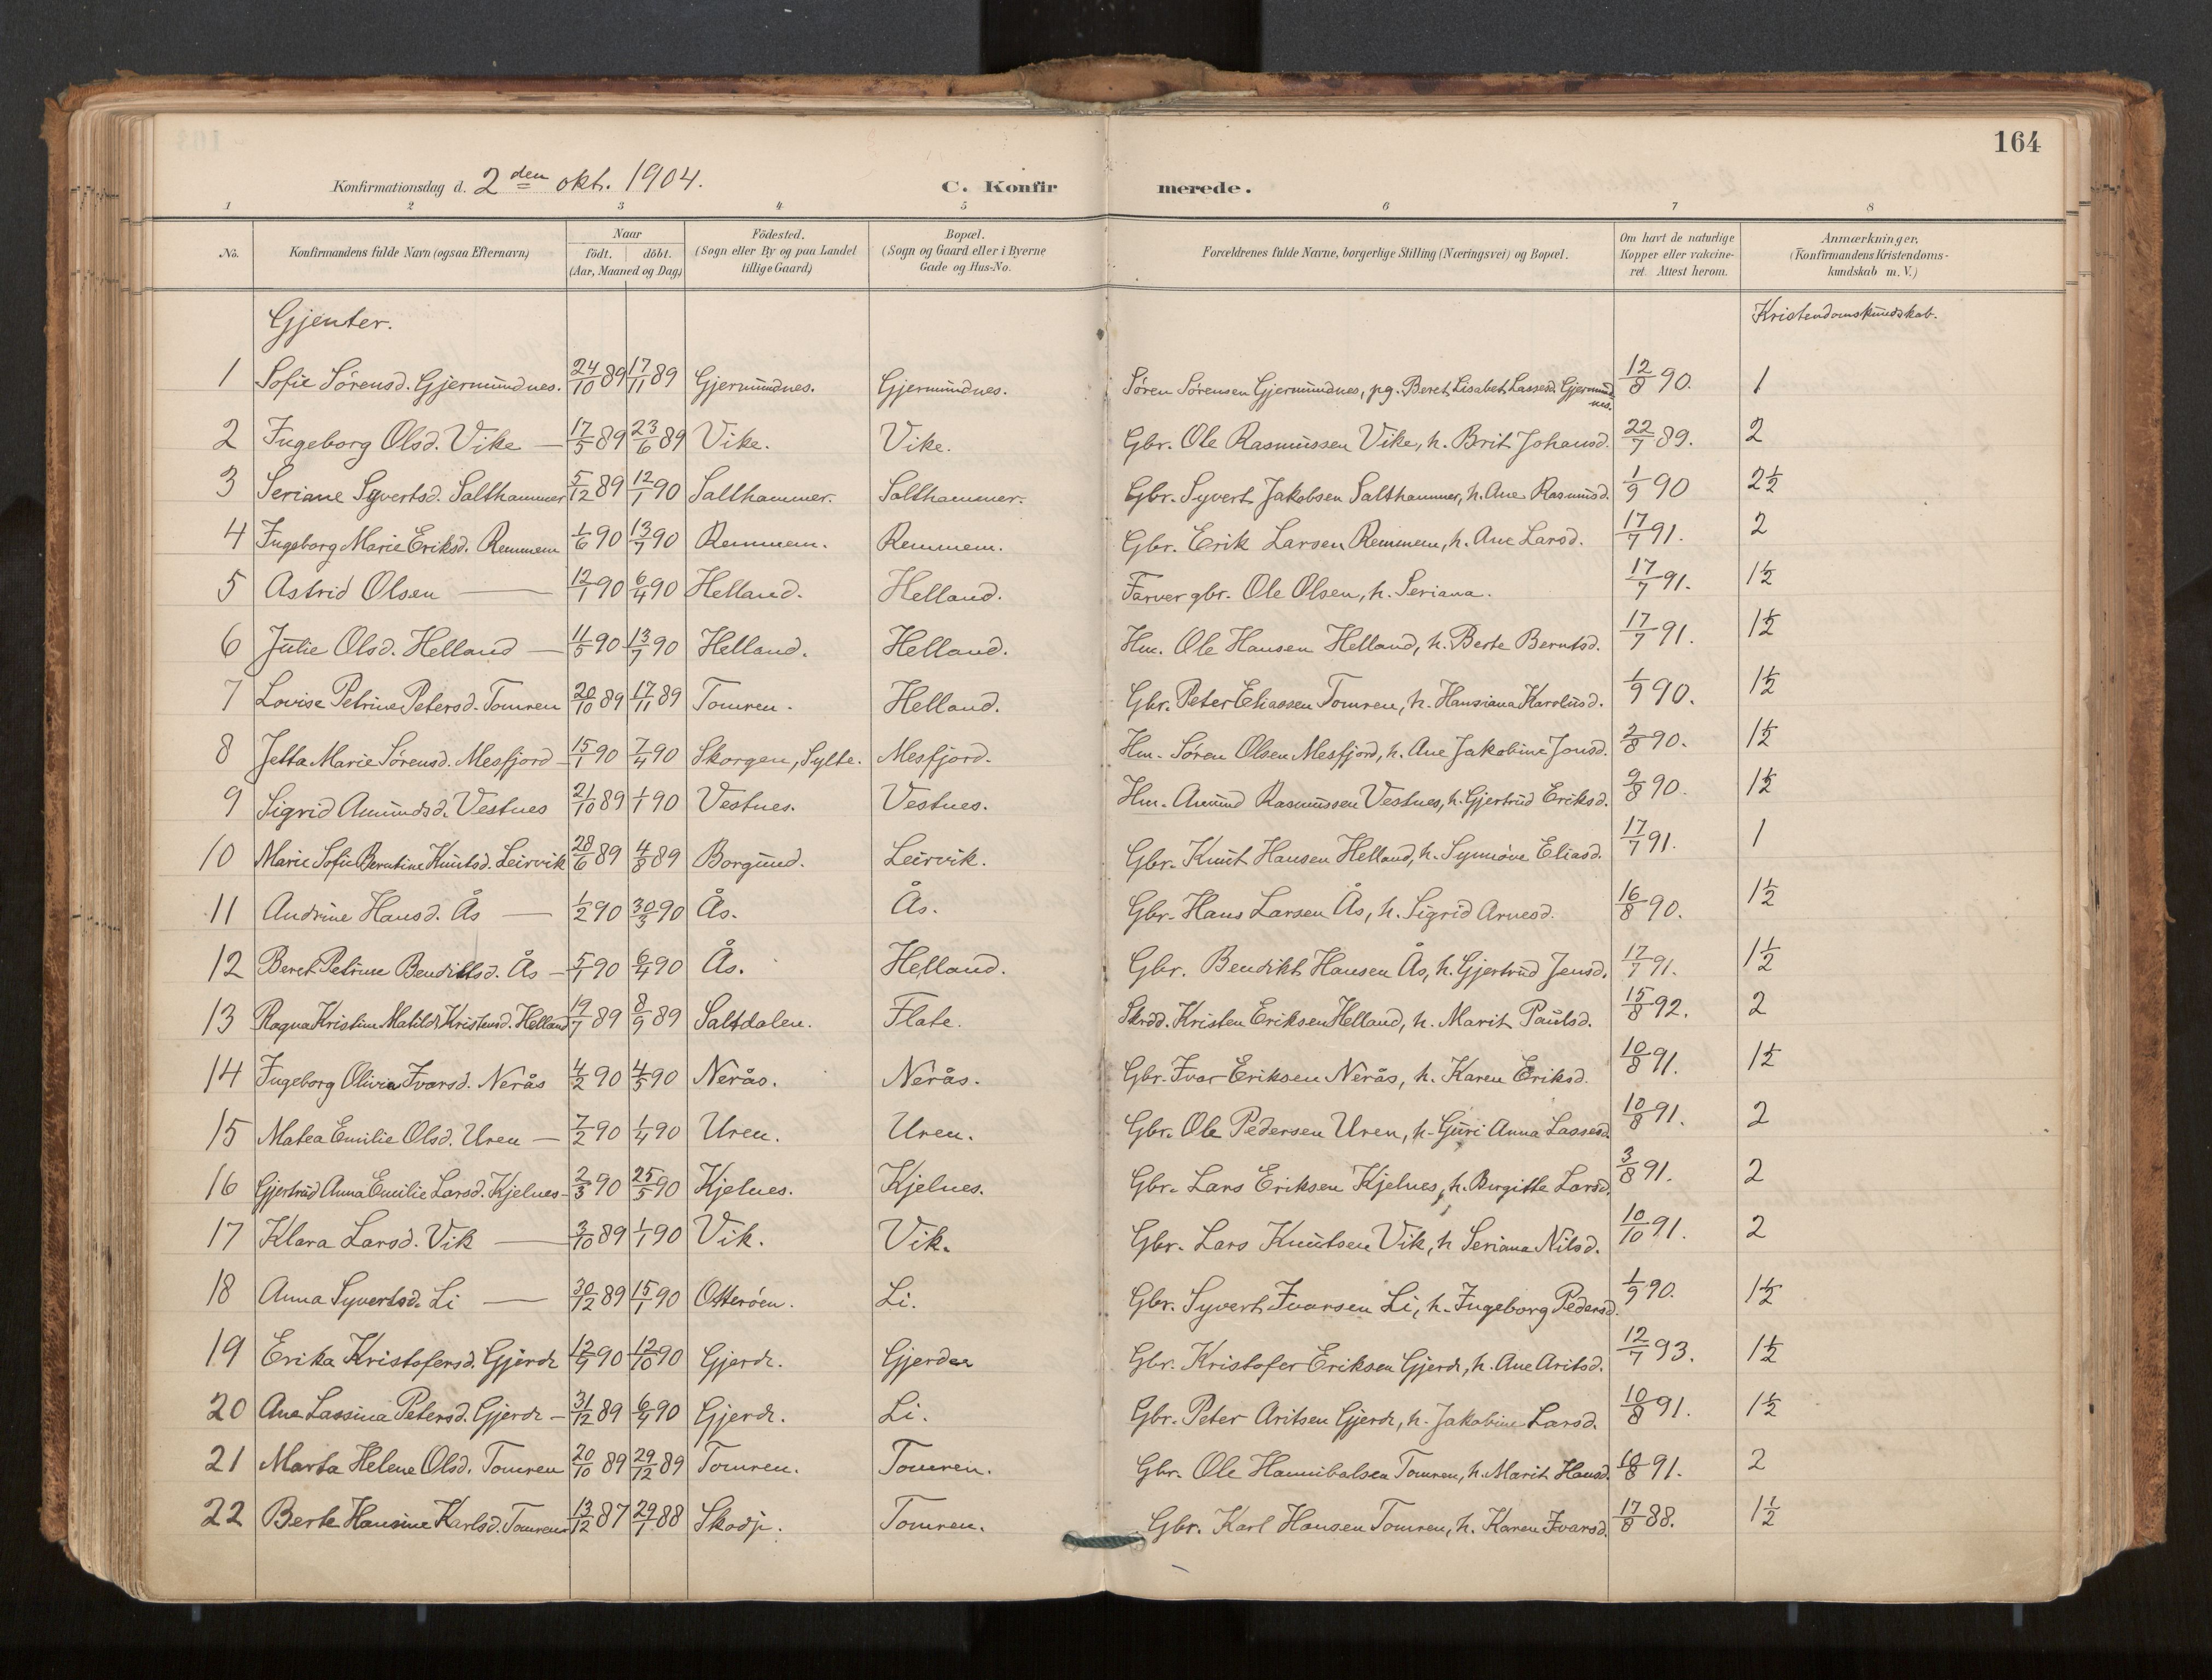 164
Konfirmationsdag d. 2den okt. 1904. C. Konfirmerede.
1 2 3 4 5 6 7 8
No. Konfirmandens fulde Navn (ogsaa Efternavn) Naar født. døbt. (Aar, Maaned og Dag) Fødested. (Sogn eller By og paa Landet tillige Gaard) Bopæl. (Sogn og Gaard eller i Byerne Gade og Hus-No. Forældrenes fulde Navne, borgerlige Stilling (Næringsvei) og Bopæl. Om havt de naturlige Kopper eller vakcineret. Attest herom. Anmærkninger, (Konfirmandens Kristendomskundskab m. V.)
Gjenter. Kristendomskundskab.
1 Sofie Sørensd. Gjermundnes. 24/10 89 17/11 89 Gjermundnes. Gjermundnes. Søren Sørensen Gjermundnes, pg. Beret Lisabet Lassesd. Gjermundnes. 12/8 90. 1
2 Ingeborg Olsd. Vike — 17/5 89 23/6 89 Vike. Vike. Gbr. Ole Rasmussen Vike, h. Brit Johansd. 22/7 89. 2
3 Seriane Syvertsd. Salthammer 5/12 89 12/1 90 Salthammer. Salthammer. Gbr. Syvert Jakobsen Salthammer, h. Ane Rasmusd. 1/9 90 2½
4 Ingeborg Marie Eriksd. Remmem 1/6 90 13/7 90 Remmem. Remmem. Gbr. Erik Larsen Remmem, h. Ane Larsd. 17/7 91. 2
5 Astrid Olsen — 12/1 90 6/4 90 Helland. Helland. Farver gbr. Ole Olsen, h. Seriana. 17/7 91. 1½
6 Julie Olsd. Helland — 11/5 90 13/7 90 Helland. Helland. Hm. Ole Hansen Helland, h. Berte Berntsd. 17/7 91. 1½
7 Lovise Petrine Petersd. Tomren 20/10 89 17/11 89 Tomren. Helland. Gbr. Peter Eliassen Tomren, h. Hansiana Karolusd. 1/9 90. 1½
8 Jetta Marie Sørensd. Mesfjord — 15/1 90 7/4 90 Skorgen, Sylte. Mesfjord. Hm. Søren Olsen Mesfjord, h. Ane Jakobine Jonsd. 2/8 90. 1½
9 Sigrid Amundsd. Vestnes 21/10 89 1/1 90 Vestnes. Vestnes. Hm. Amund Rasmussen Vestnes, h. Gjertrud Eriksd. 2/8 90. 1½
10 Marie Sofie Berntine Knutsd. Leirvik 28/6 89 4/8 89 Borgund. Leirvik. Gbr. Knut Hansen Helland, h. Synnøve Eliasd. 17/7 91. 1
11 Andrine Hansd. Ås — 1/2 90 30/3 90 Ås. Ås. Gbr. Hans Larsen Ås, h. Sigrid Arnesd. 16/8 90. 1½
12 Beret Petrine Bendiktsd. Ås — 5/1 90 6/4 90 Ås. Helland. Gbr. Bendikt Hansen Ås, h. Gjertrud Jensd. 17/7 91. 1½
13 Ragna Kristine Matilde Kristensd. Helland 19/7 89 8/9 89 Saltdalen. Flate. Skrdd. Kristen Eriksen Helland, h. Marit Paulsd. 15/8 92. 2
14 Ingeborg Olivia Ivarsd. Nerås 4/2 90 4/5 90 Nerås. Nerås. Gbr. Ivar Eriksen Nerås, h. Karen Eriksd. 10/8 91. 1½
15 Matea Emilie Olsd. Uren — 7/2 90 1/4 90 Uren. Uren. Gbr. Ole Pedersen Uren, h. Guri Anna Lassesd. 10/8 91. 2
16 Gjertrud Anna Emilie Larsd. Kjelnes — 2/3 90 25/5 90 Kjelnes. Kjelnes. Gbr. Lars Eriksen Kjelnes, h. Birgitte Larsd. 3/8 91. 2
17 Klara Larsd. Vik — 3/10 89 1/1 90 Vik. Vik. Gbr. Lars Knutsen Vik, h Seriana Nilsd. 10/10 91. 2
18 Anna Syvertsd. Li — 30/12 89 15/1 90 Otterøen. Li. Gbr. Syvert Ivarsen Li, h. Ingeborg Pedersd. 1/9 90. 1½
19 Erika Kristofersd. Gjerde 12/9 90 12/10 90 Gjerde. Gjerde Gbr. Kristofer Eriksen Gjerde, h. Ane Aritsd. 12/7 93. 1½
20 Ane Lassina Petersd. Gjerde — 31/12 89 6/4 90 Gjerde. Li. Gbr. Peter Aritsen Gjerde, h. Jakobine Larsd. 10/8 91. 1½
21 Marta Helene Olsd. Tomren 20/10 89 29/12 89 Tomren. Tomren. Gbr. Ole Hannibalsen Tomren, h. Marit Hansd. 10/8 91. 2
22 Berte Hansine Karlsd. Tomren 13/12 87 29/1 88 Skodje. Tomren. Gbr. Karl Hansen Tomren, h. Karen Ivarsd. 17/8 88. 1½